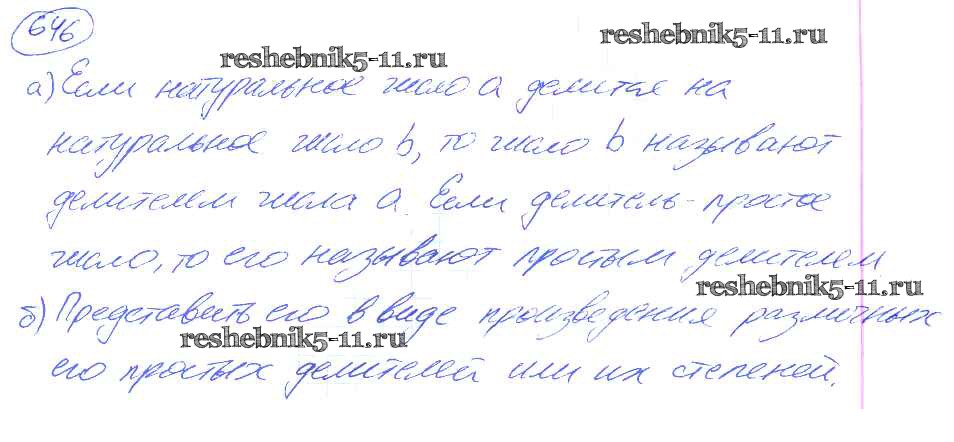 646
reshebnik5-11.ru
reshebnik5-11.ru
а) Если натуральное число а делится на
натуральное число b, то число b называют
делителем числа а. Если делитель - простое
число, то его называют простым делителем
reshebnik5-11.ru
б) Представить его в виде произведения различных
reshebnik5-11.ru
его простых делителей или их степеней.